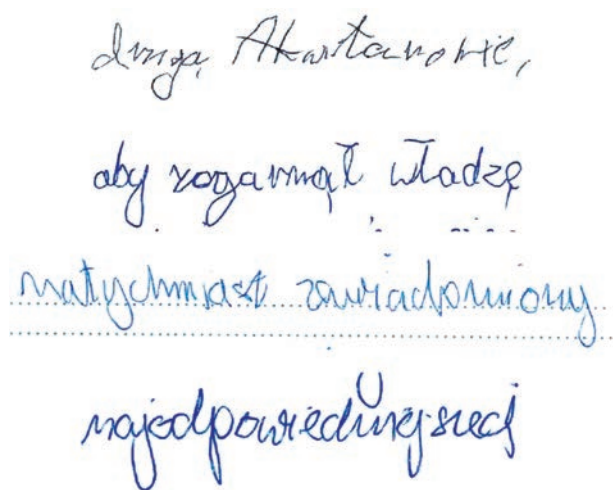 drugą Akwitanowie,
aby zagarnął władzę
natychmiast zawiadomiony
najodpowiedniejszej